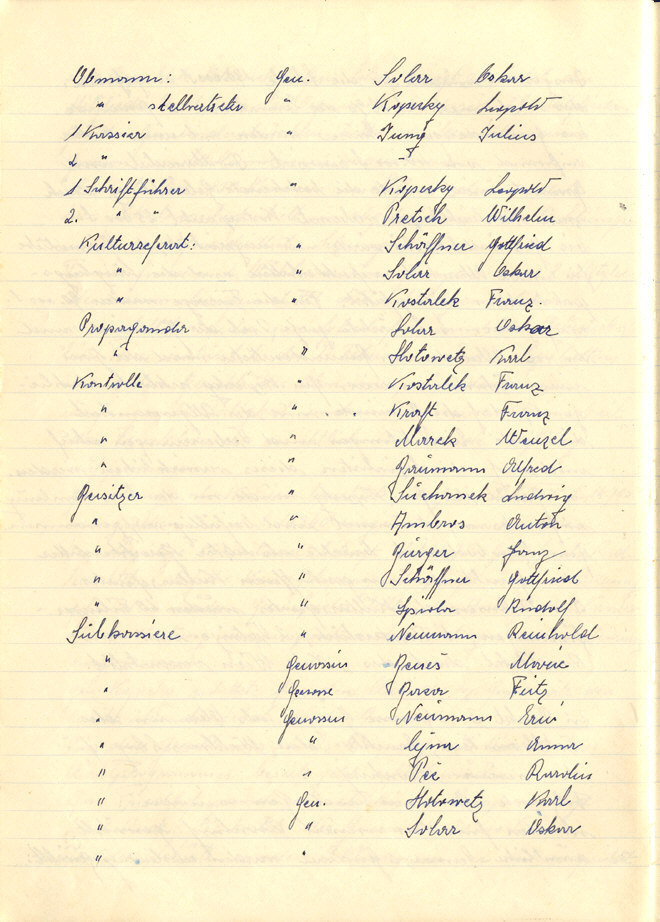 Obmann: Gen. Solar Oskar
" stellvertreter " Kopezky Leopold
1 Kassier " Jung Julius
2 " -"-
1 Schriftführer " Kopezky Leopold
2. " " Pretsch Wilhelm
Kulturreferat: " Schöffner Gottfried
" Solar Oskar
" Kostalek Franz.
Propaganda Solar Oskar
" " Hotowetz Karl
Kontrolle " Kostalek Franz
" " Kraft Franz
" " Marek Wenzel
" " Baumann Alfred
Beisitzer " Suchanek Ludwig
" " Ambros Anton
" " Burger Franz
" " Schöffner Gottfried
" " Rudolf
Subkassiere " Neumann Reinhold
" Genossin Beneš Marie
" Genosse Fritz
" Genossin Neumann Erni
" " Anna
" " Karolin
" Gen. Hotowetz Karl
" " Solar Oskar
" "